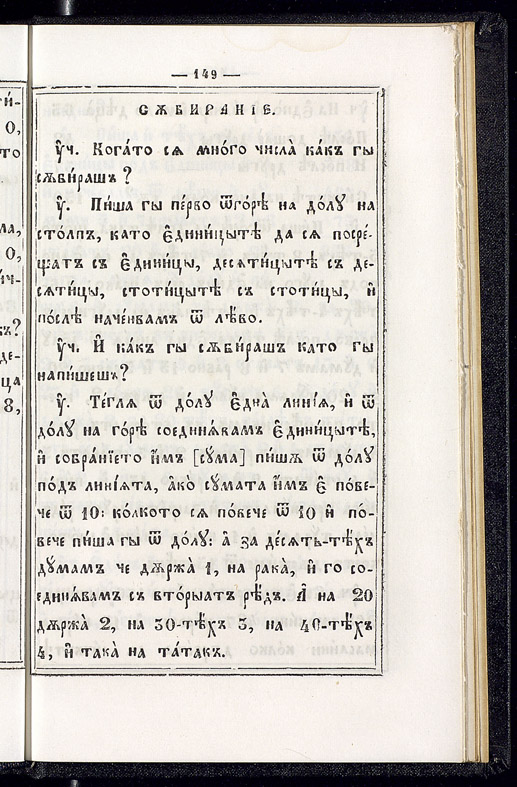 — 149 —
СѪБИРА́НІЕ.
Оу҆ч. Кога́то сѧ мно́го числа̀ ка́къ гы
сѫби́рашъ?
Оу҆. Пи́ша гы пе́рво ѿго́рѣ на до́лꙋ на
сто́лпъ, като є҆дини́цытѣ да сѧ посре́-
щатъ съ є҆дини́цы, десѧти́цытѣ съ де-
сѧти́цы, стоти́цытѣ съ стоти́цы, и҆
по́слѣ наче́нвамъ ѿ лѣ́во.
Оу҆ч. И҆ ка́къ гы сѫби́рашъ като гы
напи́шешъ?
Оу҆. Те́глѧ ѿ до́лꙋ є҆дна̀ линїѧ, и҆ ѿ
до́лꙋ на го́рѣ соединѧ́вамъ є҆дини́цытѣ,
и҆ собра́нїето и҆мъ [сꙋма] пи́шѫ ѿ до́лꙋ
по́дъ линїѧта, а҆ко сꙋмата и҆мъ є҆ по́ве-
че ѿ 10: ко́лкото сѧ по́вече ѿ 10 и҆ по́-
вече пи́ша гы ѿ до́лꙋ: а҆ за де́сѧть-тѣ́хъ
дꙋ́мамъ че дѫржа̀ 1, на рака̀, и҆ го со-
единѧ́вамъ съ вто́рыатъ рѣ́дъ. А҆ на 20
дѫржа̀ 2, на 30-тѣ́хъ 3, на 40-тѣ́хъ
4, и҆ така̀ на та́такъ.
ти́-
О,
то
ма,
О,
и́ч-
къ?
де-
ца
8,